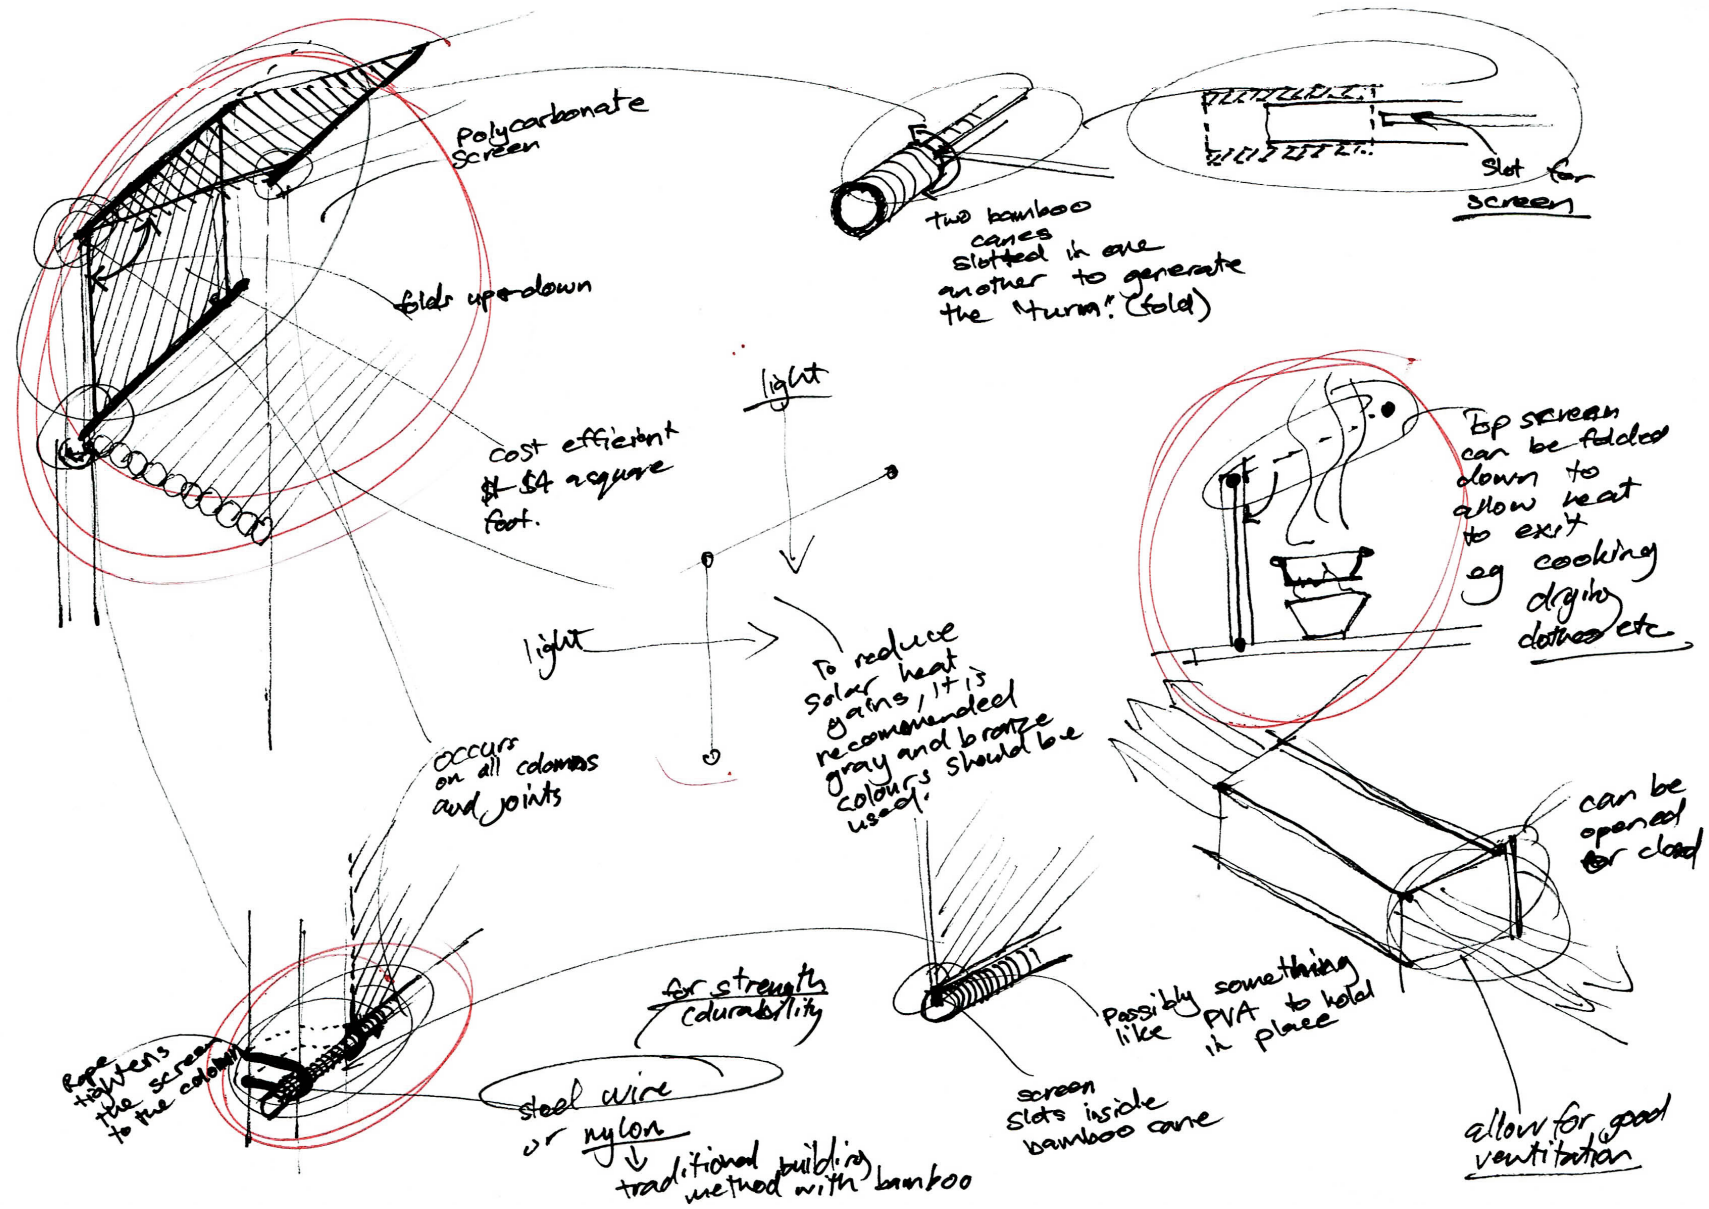 Polycarbonate
screen
folds up + down
cost efficient
$1-$4 a square
foot.
two bamboo
canes
slotted in one
another to generate
the "turn". (fold)
slot for
screen
light
light
To reduce
solar heat
gains, it is
recommended
gray and bronze
colours should be
used.
Top screen
can be folded
down to
allow heat
to exit
eg cooking
drying
clothes etc
occurs
on all columns
and joints
can be
opened
or closed
for strength
(durability
Rope
tightens
the screen
to the column
steel wire
or nylon
traditional building
method with bamboo
screen
slots inside
bamboo cane
Possibly something
like PVA to hold
in place
allow for good
ventitation